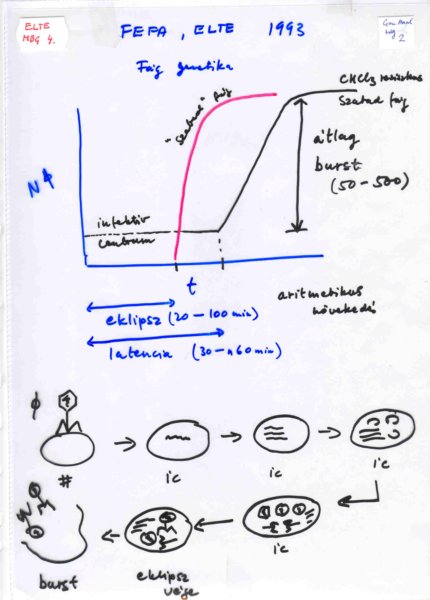 ELTE
MBG 4.
FEFA, ELTE 1993
2
Fág genetika
CHCl3 rezisztens
szabad fág
"szabad" fág
átlag
burst
(50-500)
Nϕ
infektív
centrum
t
aritmetikus
növekedés
eklipsz (20-100 min)
latencia (30-160 min)
ϕ
#
ic
ic
ic
ic
eklipsz
vége
burst